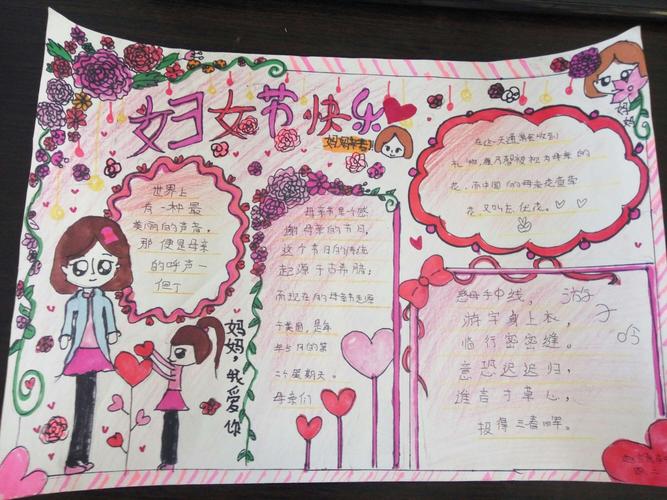 妇女节快乐
妈妈
世界上
有一种最
美丽的声音，
那便是母亲
的呼声一
但丁
妈妈，我爱你
母亲节是个感
谢母亲的节日，
这个节日的传统
起源于古希腊；
而现在的母亲节起源
于美国，是年
年5月的第
二个星期天。
母亲们
在这一天通常会收到
礼物，康乃馨被视为母亲的
花，而中国的母亲花是萱
花，又叫
游子吟
慈母手中线，
游字身上衣，
临行密密缝。
意恐迟迟归，
谁言寸草心，
报得三春晖。